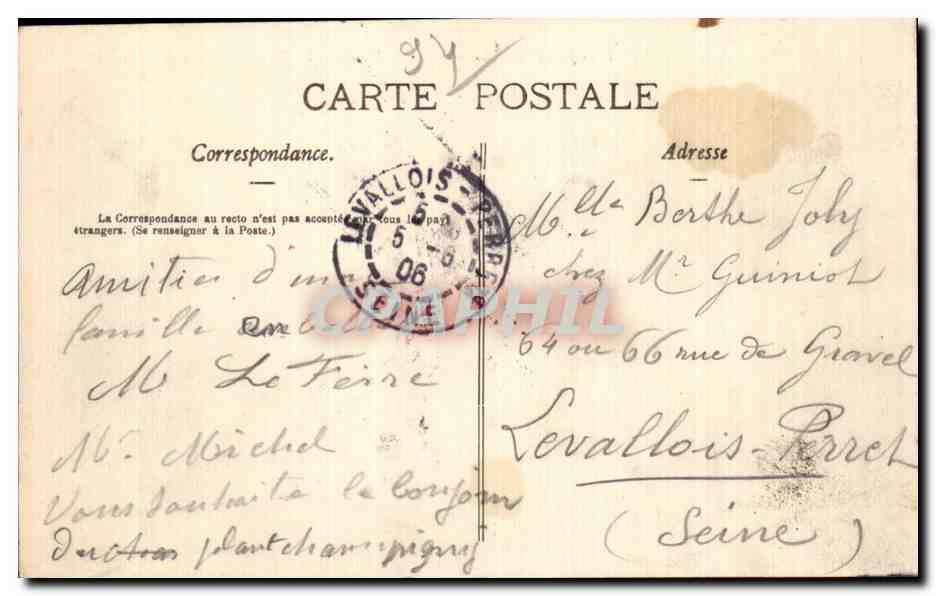 94
CARTE POSTALE
Correspondance.
La Correspondance au recto n'est pas acceptée par tous les pays
étrangers. (Se renseigner à la Poste.)
Amitiés d'une
famille
M Le Ferre
Mr Michel
Vous souhaite le bonjour
plant champigny
Adresse
Mlle Berthe Joly
chez Mr Guiniot
64 ou 66 rue de Gravel
Levallois-Perret
(Seine)
LEVALLOIS-PERRET
5
5 - 6
06
SEINE
CPAPHIL